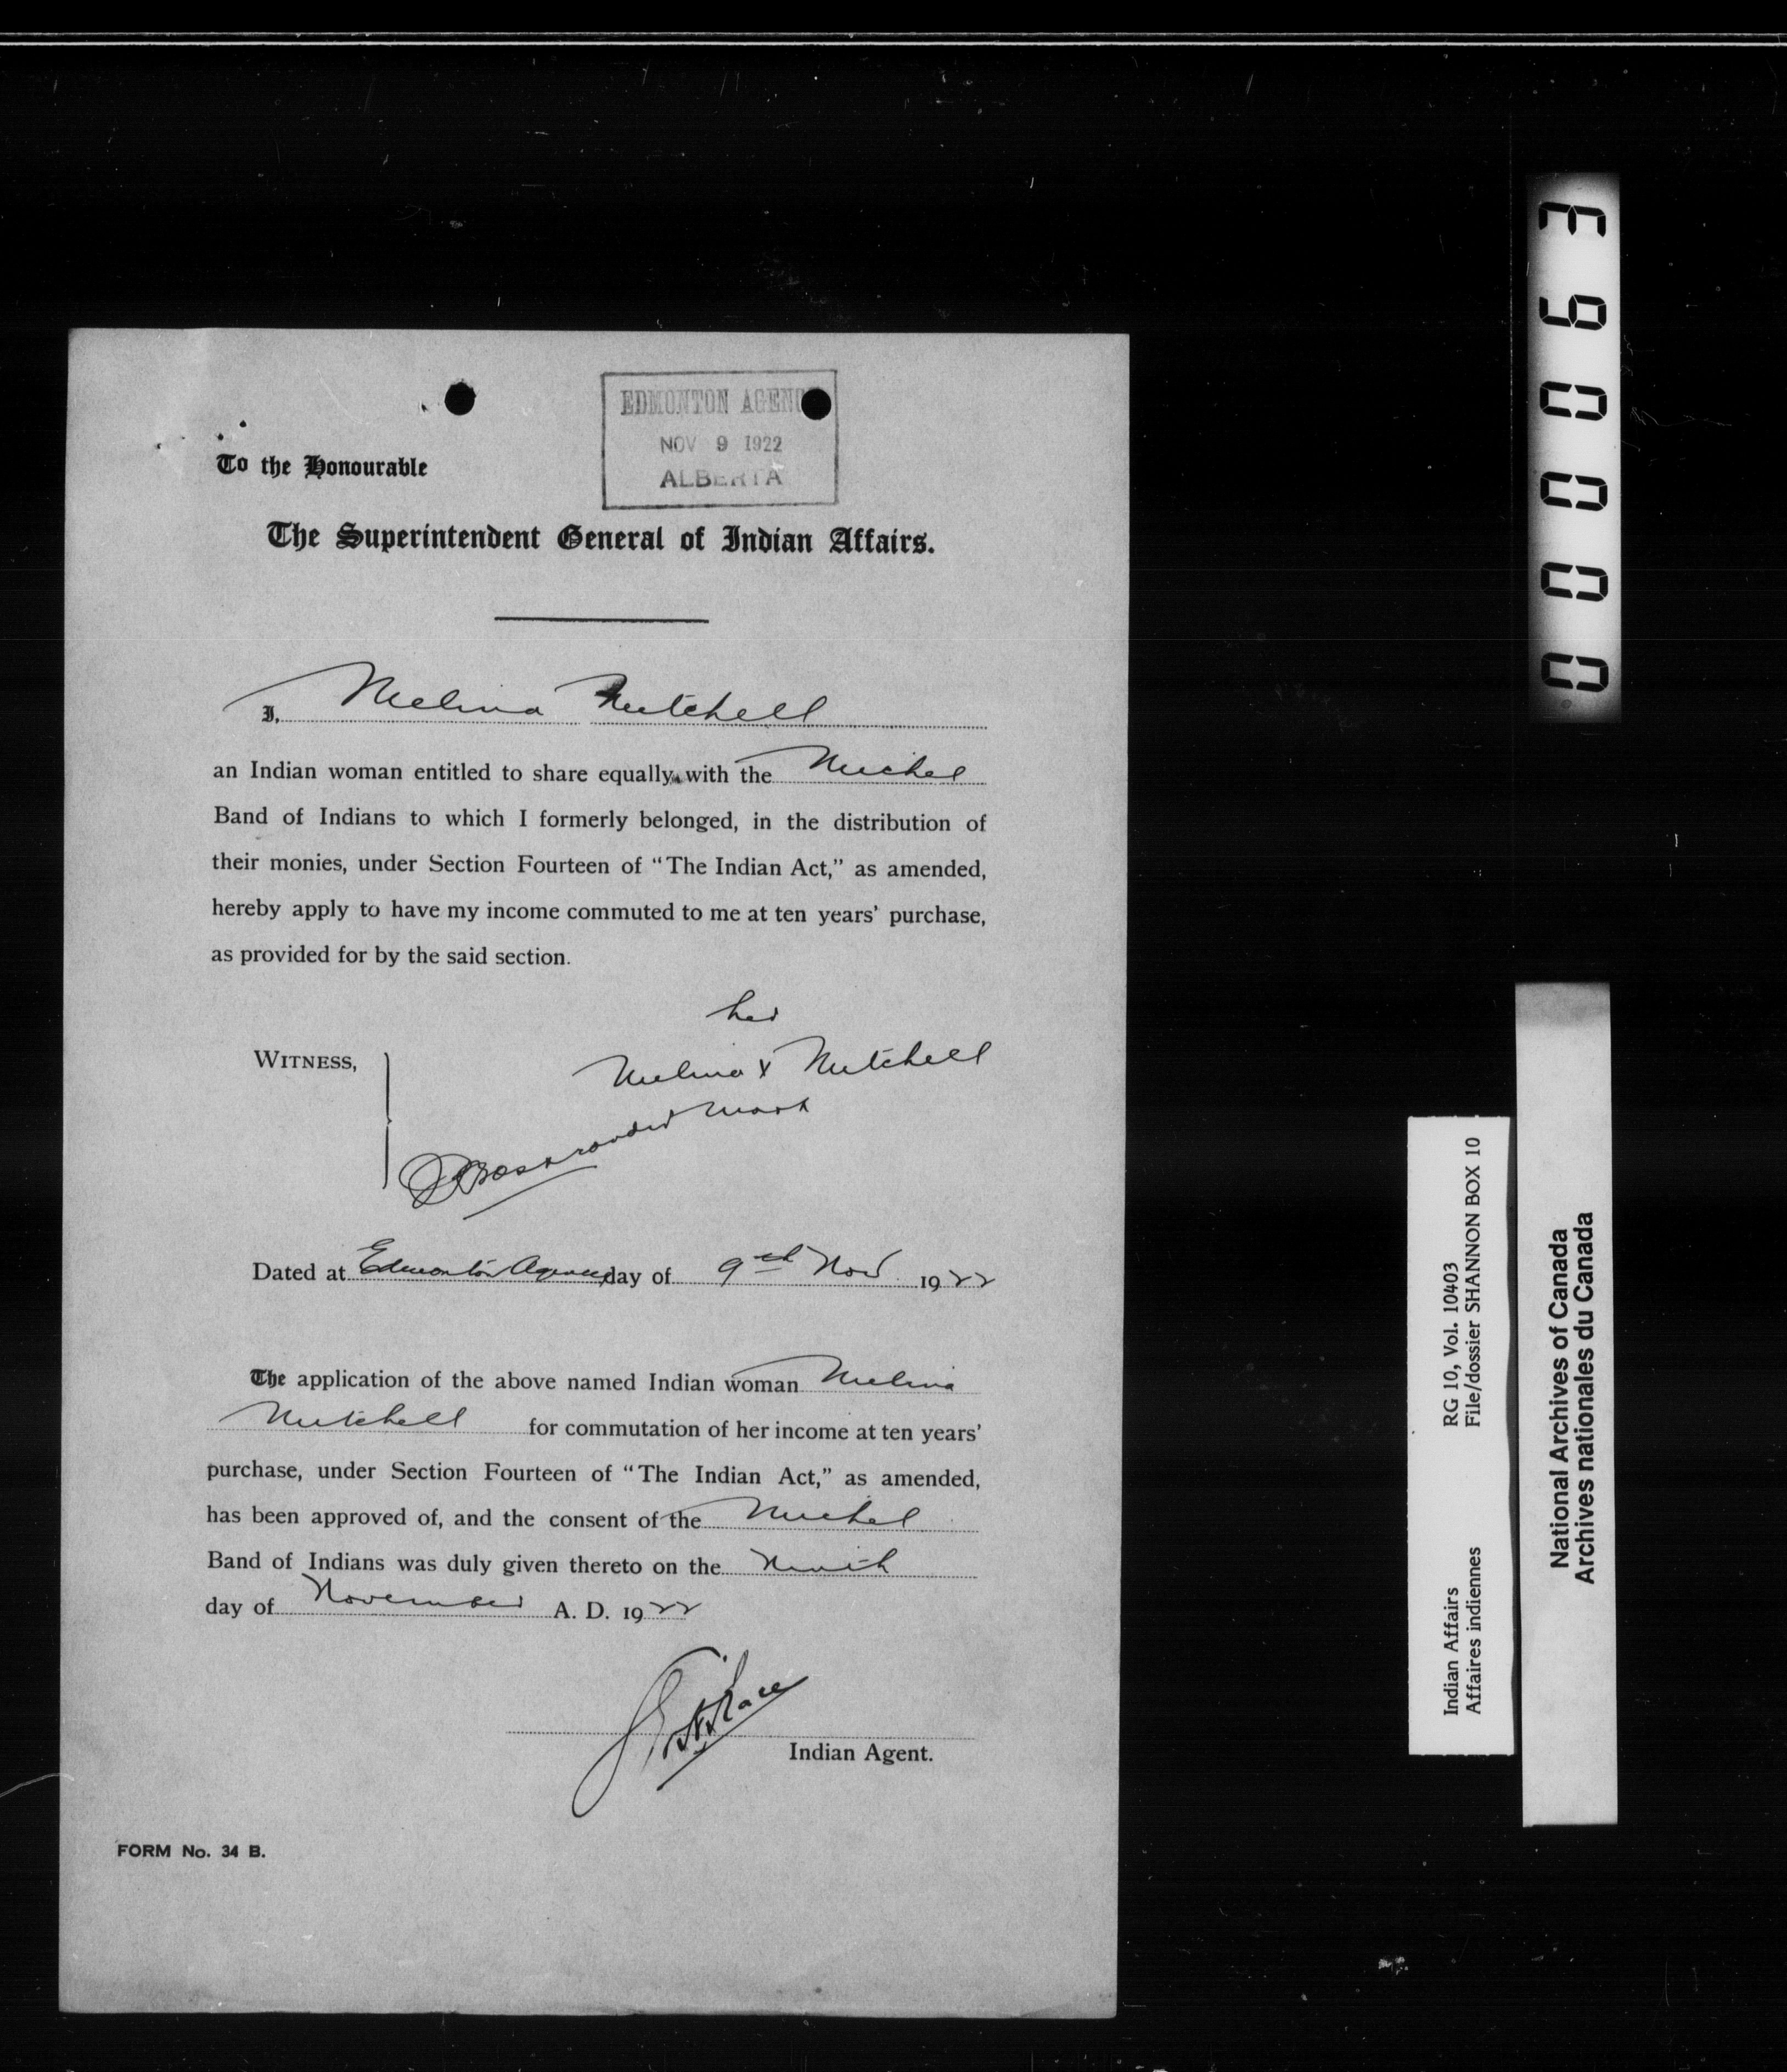 EDMONTON AGENC
NOV 9 1922
ALBERTA
To the Honourable
The Superintendent General of Indian Affairs.
I, Melina Mitchell
an Indian woman entitled to share equally with the Michel
Band of Indians to which I formerly belonged, in the distribution of
their monies, under Section Fourteen of "The Indian Act," as amended,
hereby apply to have my income commuted to me at ten years' purchase,
as provided for by the said section.
her
WITNESS, Melina X Mitchell
mark
Dated at Edmonton Agency day of 9th Nov 1922
The application of the above named Indian woman Melina
Mitchell for commutation of her income at ten years'
purchase, under Section Fourteen of "The Indian Act," as amended,
has been approved of, and the consent of the Michel
Band of Indians was duly given thereto on the Ninth
day of November A. D. 1922
Indian Agent.
FORM No. 34 B.
000063
Indian Affairs RG 10, Vol. 10403
Affaires indiennes File/dossier SHANNON BOX 10
National Archives of Canada
Archives nationales du Canada